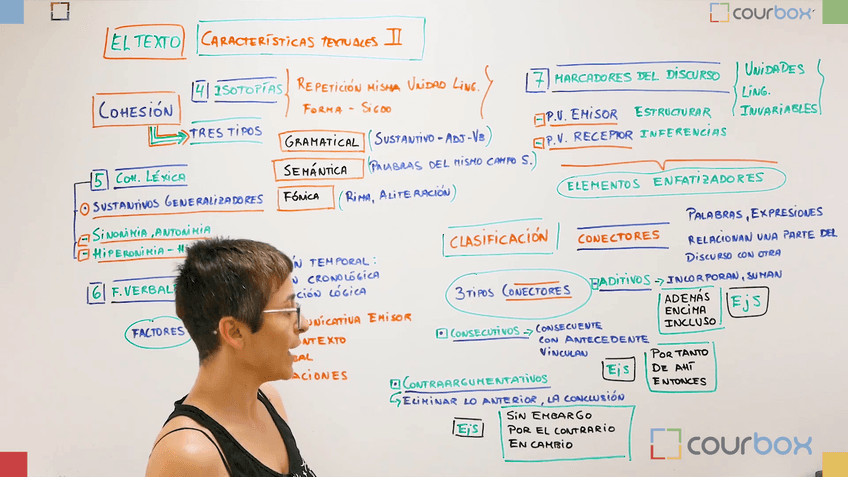 courbox
EL TEXTO
CARACTERÍSTICAS TEXTUALES II
COHESIÓN
TRES TIPOS
4 ISOTOPÍAS
REPETICIÓN MISMA UNIDAD LING.
FORMA - SIGDO
GRAMATICAL (SUSTANTIVO - ADJ - VB)
SEMÁNTICA (PALABRAS DEL MISMO CAMPO S.)
FÓNICA (RIMA, ALITERACIÓN)
5 COH. LÉXICA
SUSTANTIVOS GENERALIZADORES
SINONIMIA, ANTONIMIA
HIPERONIMIA -
6 F. VERBALE
TEMPORAL:
CRONOLÓGICA
LÓGICA
FACTORES
EMISOR
7 MARCADORES DEL DISCURSO
UNIDADES
LING.
INVARIABLES
P.V. EMISOR ESTRUCTURAR
P.V. RECEPTOR INFERENCIAS
ELEMENTOS ENFATIZADORES
CLASIFICACIÓN
CONECTORES
PALABRAS, EXPRESIONES
RELACIONAN UNA PARTE DEL
DISCURSO CON OTRA
3 TIPOS CONECTORES
ADITIVOS → INCORPORAN, SUMAN
ADEMÁS
ENCIMA
INCLUSO
EjS
CONSECUTIVOS → CONSECUENTE
CON ANTECEDENTE
VINCULAN
EjS
POR TANTO
DE AHÍ
ENTONCES
CONTRAARGUMENTATIVOS
ELIMINAR LO ANTERIOR, LA CONCLUSIÓN
EjS
SIN EMBARGO
POR EL CONTRARIO
EN CAMBIO
courbox